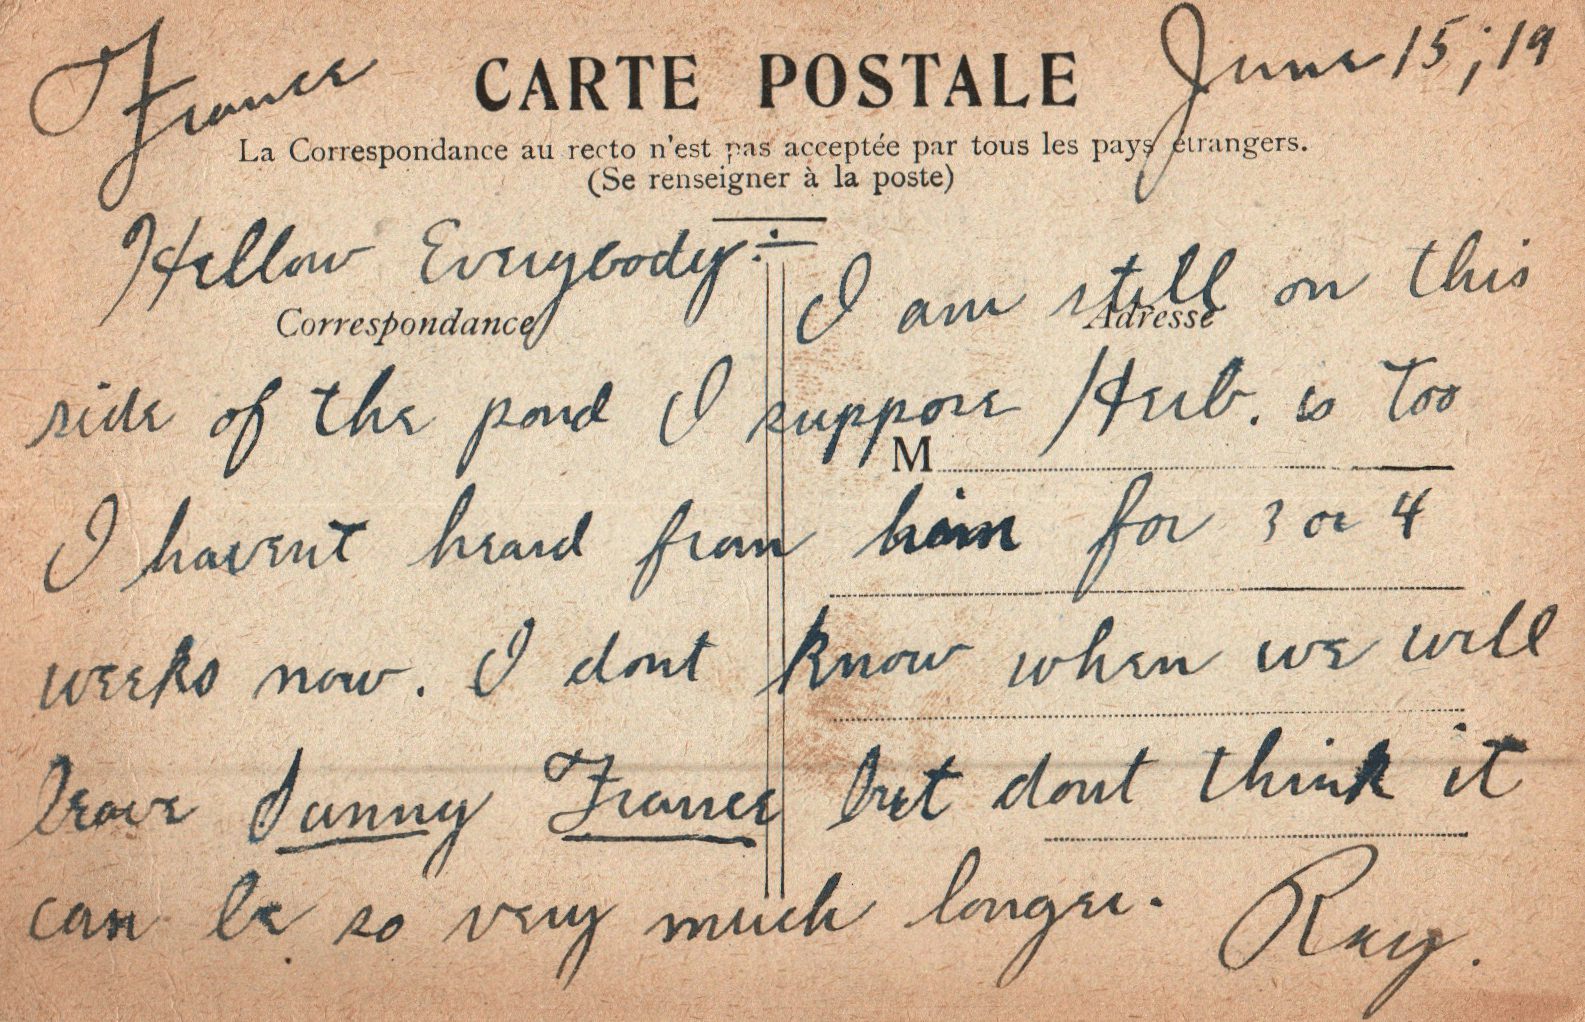 France CARTE POSTALE June 15; 19
La Correspondance au recto n'est pas acceptée par tous les pays étrangers.
(Se renseigner à la poste)
Hellow Everybody:-
Correspondance
I am still on this
Adresse
side of the pond I suppose Herb. is too
M
I havent heard from him for 3 or 4
weeks now. I dont know when we will
leave Sunny France but dont think it
can be so very much longer. Ray.